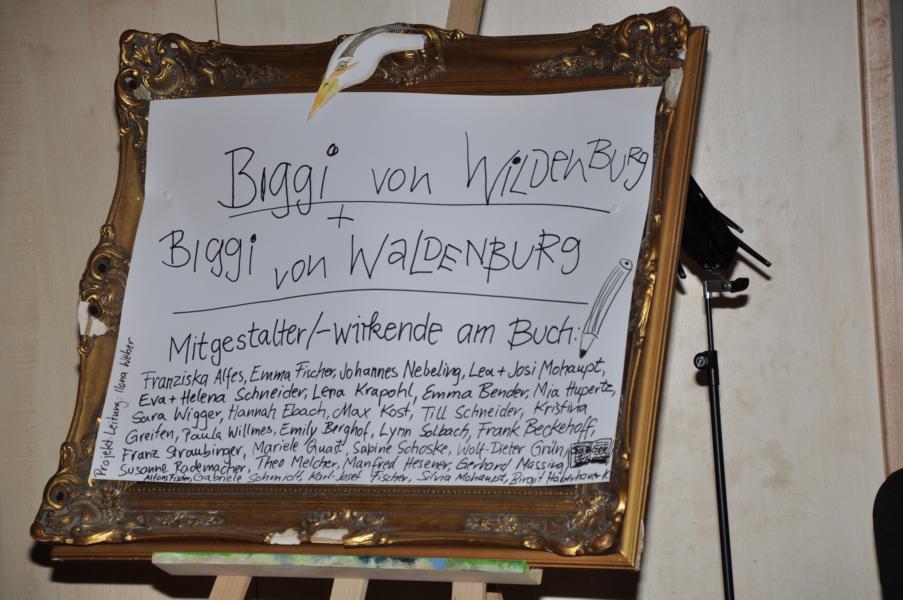 Biggi von WildenBurg
+
Biggi von WALDENBURG
Mitgestalter/-wirkende am Buch:
Franziska Alfes, Emma Fischer, Johannes Nebeling, Lea + Josi Mohaupt,
Eva + Helena Schneider, Lena Krapohl, Emma Bender, Mia Hupertz,
Sara Wigger, Hannah Ebach, Max Kost, Till Schneider, Kristina
Greiten, Paula Willmes, Emily Berghof, Lynn Solbach, Frank Beckehoff,
Franz Straubinger, Mariele Quast, Sabine Schoske, Wolf-Dieter Grün,
Susanne Rademacher, Theo Melcher, Manfred Hesener, Gerhard Massing
Alfons Fischer, Gabriele Schmidt, Karl-Josef Fischer, Silvia Mohaupt, Birgit
Projekt Leitung: Ilona Weber